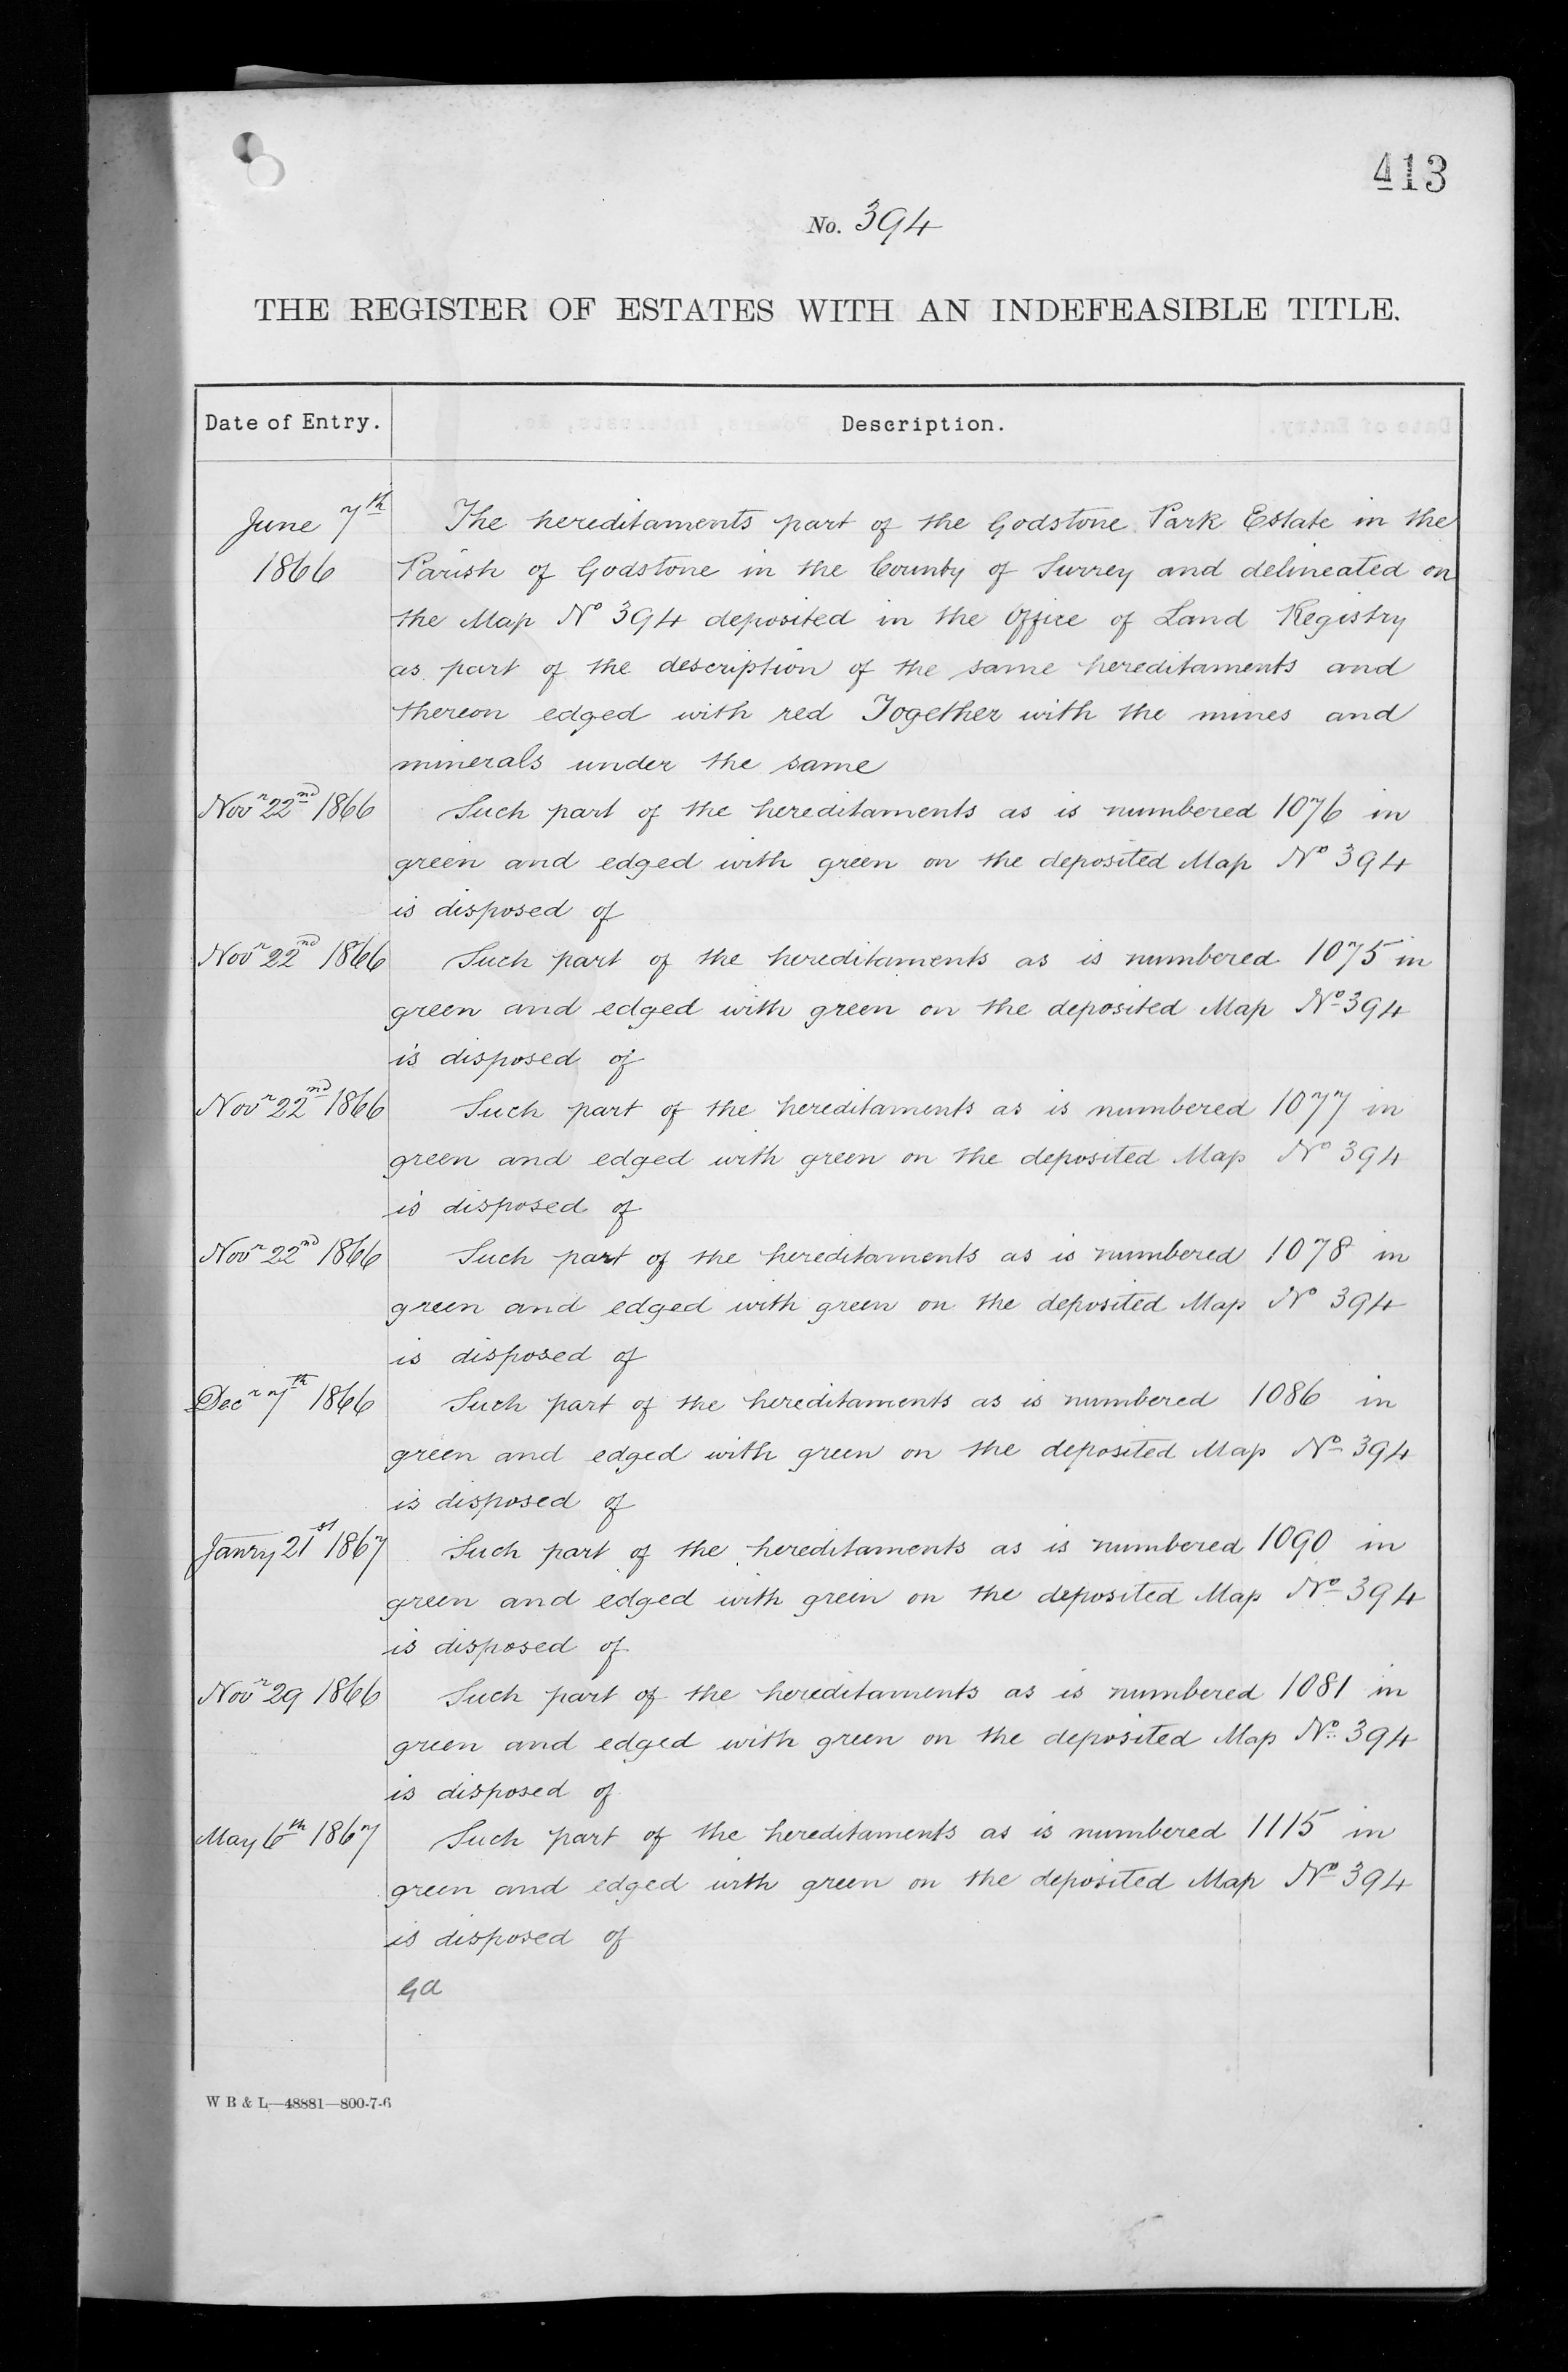 413
No. 394
THE REGISTER OF ESTATES WITH AN INDEFEASIBLE TITLE.
Date of Entry. Description.
June 7th The hereditaments part of the Godstone Park Estate in the
1866 Parish of Godstone in the County of Surrey and delineated on
the Map No 394 deposited in the Office of Land Registry
as part of the description of the same hereditaments and
thereon edged with red Together with the mines and
minerals under the same
Novr 22nd 1866 Such part of the hereditaments as is numbered 1076 in
green and edged with green on the deposited Map No 394
is disposed of
Novr 22nd 1866 Such part of the hereditaments as is numbered 1075 in
green and edged with green on the deposited Map No 394
is disposed of
Novr 22nd 1866 Such part of the hereditaments as is numbered 1077 in
green and edged with green on the deposited Map No 394
is disposed of
Novr 22nd 1866 Such part of the hereditaments as is numbered 1078 in
green and edged with green on the deposited Map No 394
is disposed of
Decr 7th 1866 Such part of the hereditaments as is numbered 1086 in
green and edged with green on the deposited Map No 394
is disposed of
Janry 21st 1867 Such part of the hereditaments as is numbered 1090 in
green and edged with green on the deposited Map No 394
is disposed of
Novr 29 1866 Such part of the hereditaments as is numbered 1081 in
green and edged with green on the deposited Map No 394
is disposed of
May 6th 1867 Such part of the hereditaments as is numbered 1115 in
green and edged with green on the deposited Map No 394
is disposed of
Ga
W B & L—48881—800-7-6